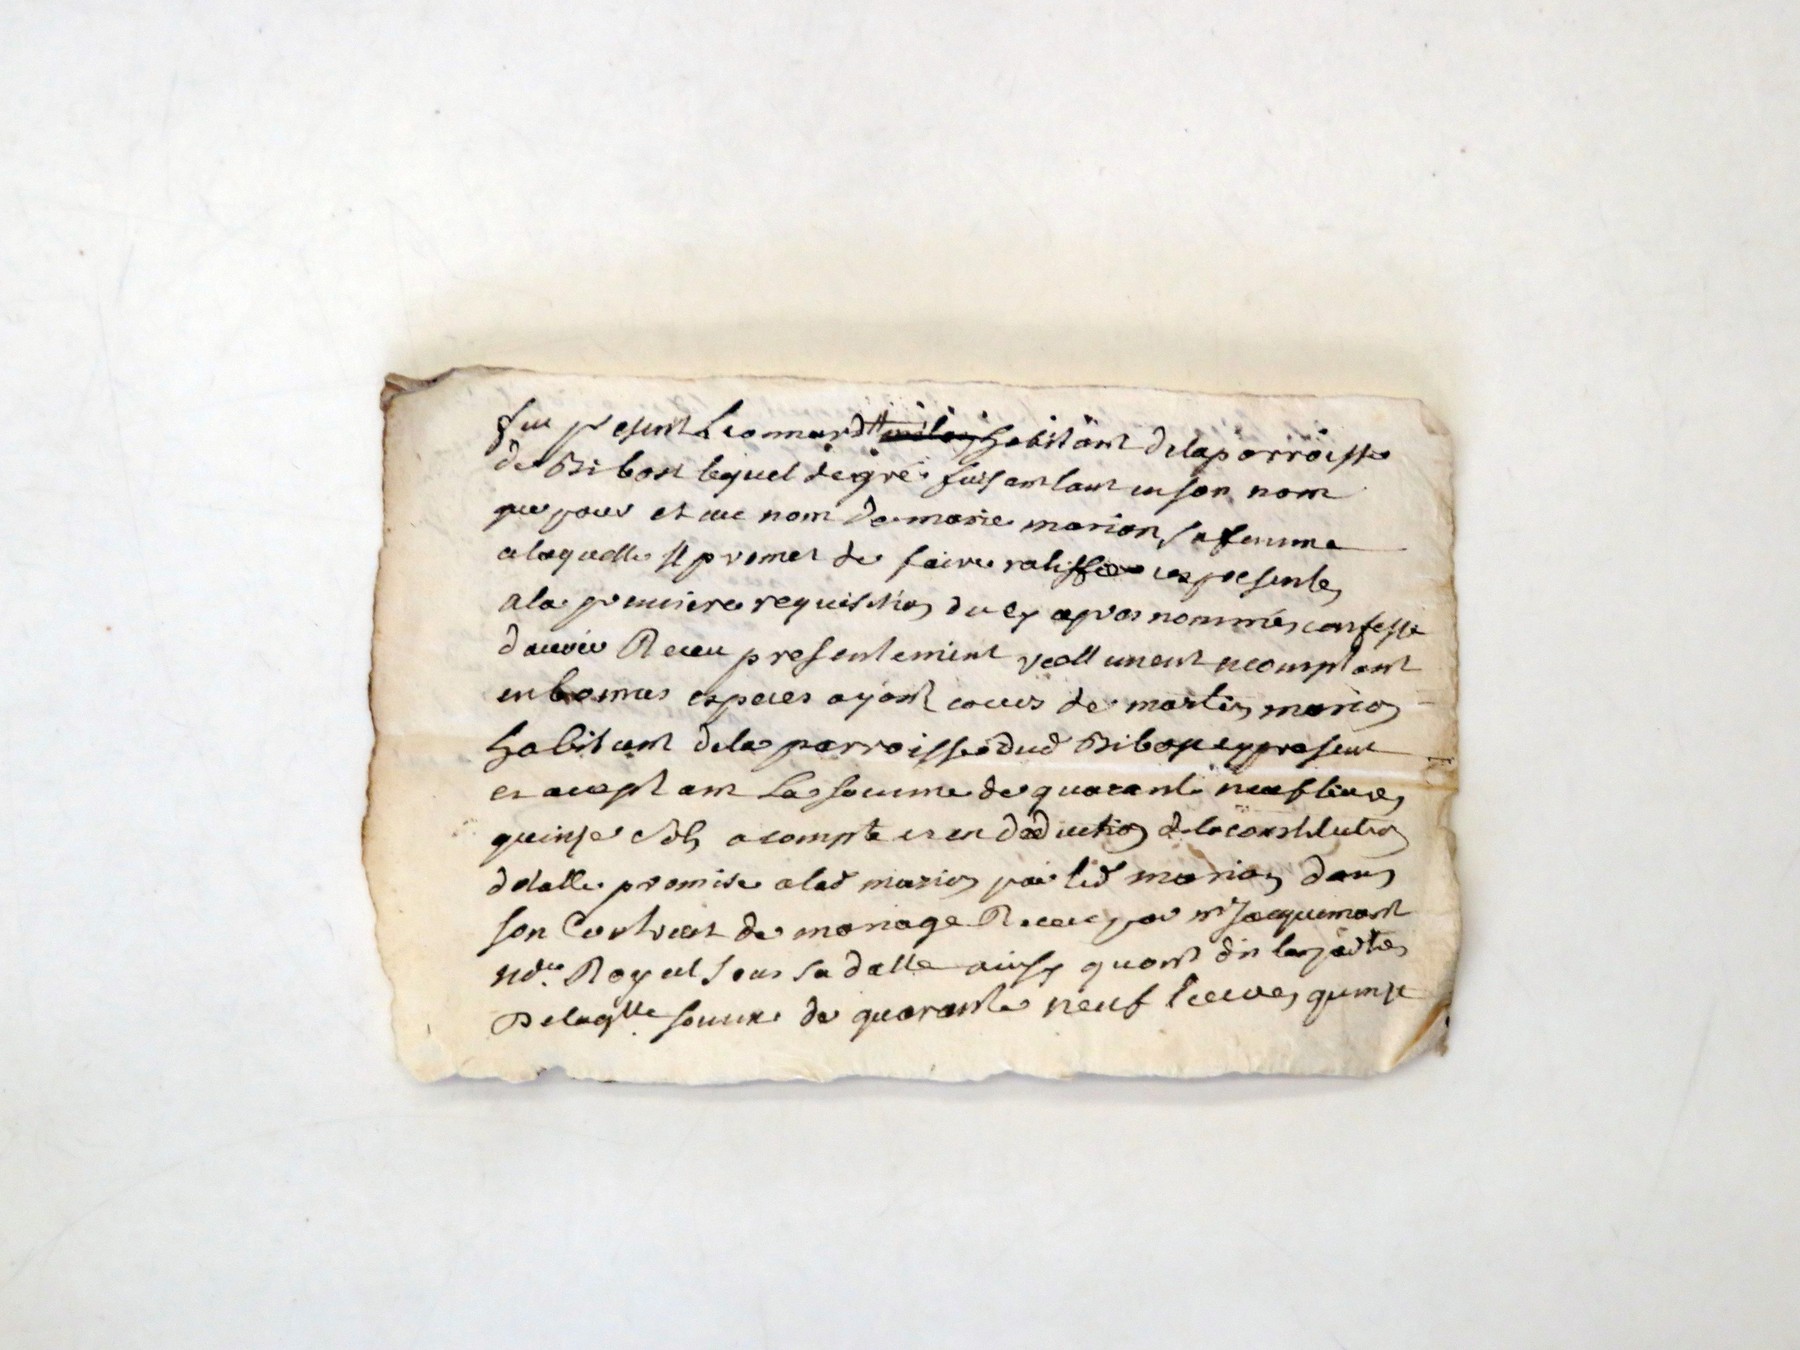 fut present Leonnard habitant de la parroisse
de Bibost lequel de gré faisant tant en son nom
que pour et au nom de marie marion sa femme
a laquelle il promet de faire ratiffier ces presentes
a la premiere requisition du cy apres nommé confesse
d'avoir Receu presentement reellement et comptant
en bonnes especes ayant cours de martin marion
habitant de la parroisse dud Bibost cy present
et aceptant La somme de quarante neuf livres
quinse sols a compte et en deduction de la constitution
dotalle promise a lad marion par led marion dans
son Contract de mariage Receu par mr Jacquemont
nore Royal sous sa datte ainsy quont dit les parties
De laqlle somme de quarante neuf livres quinse